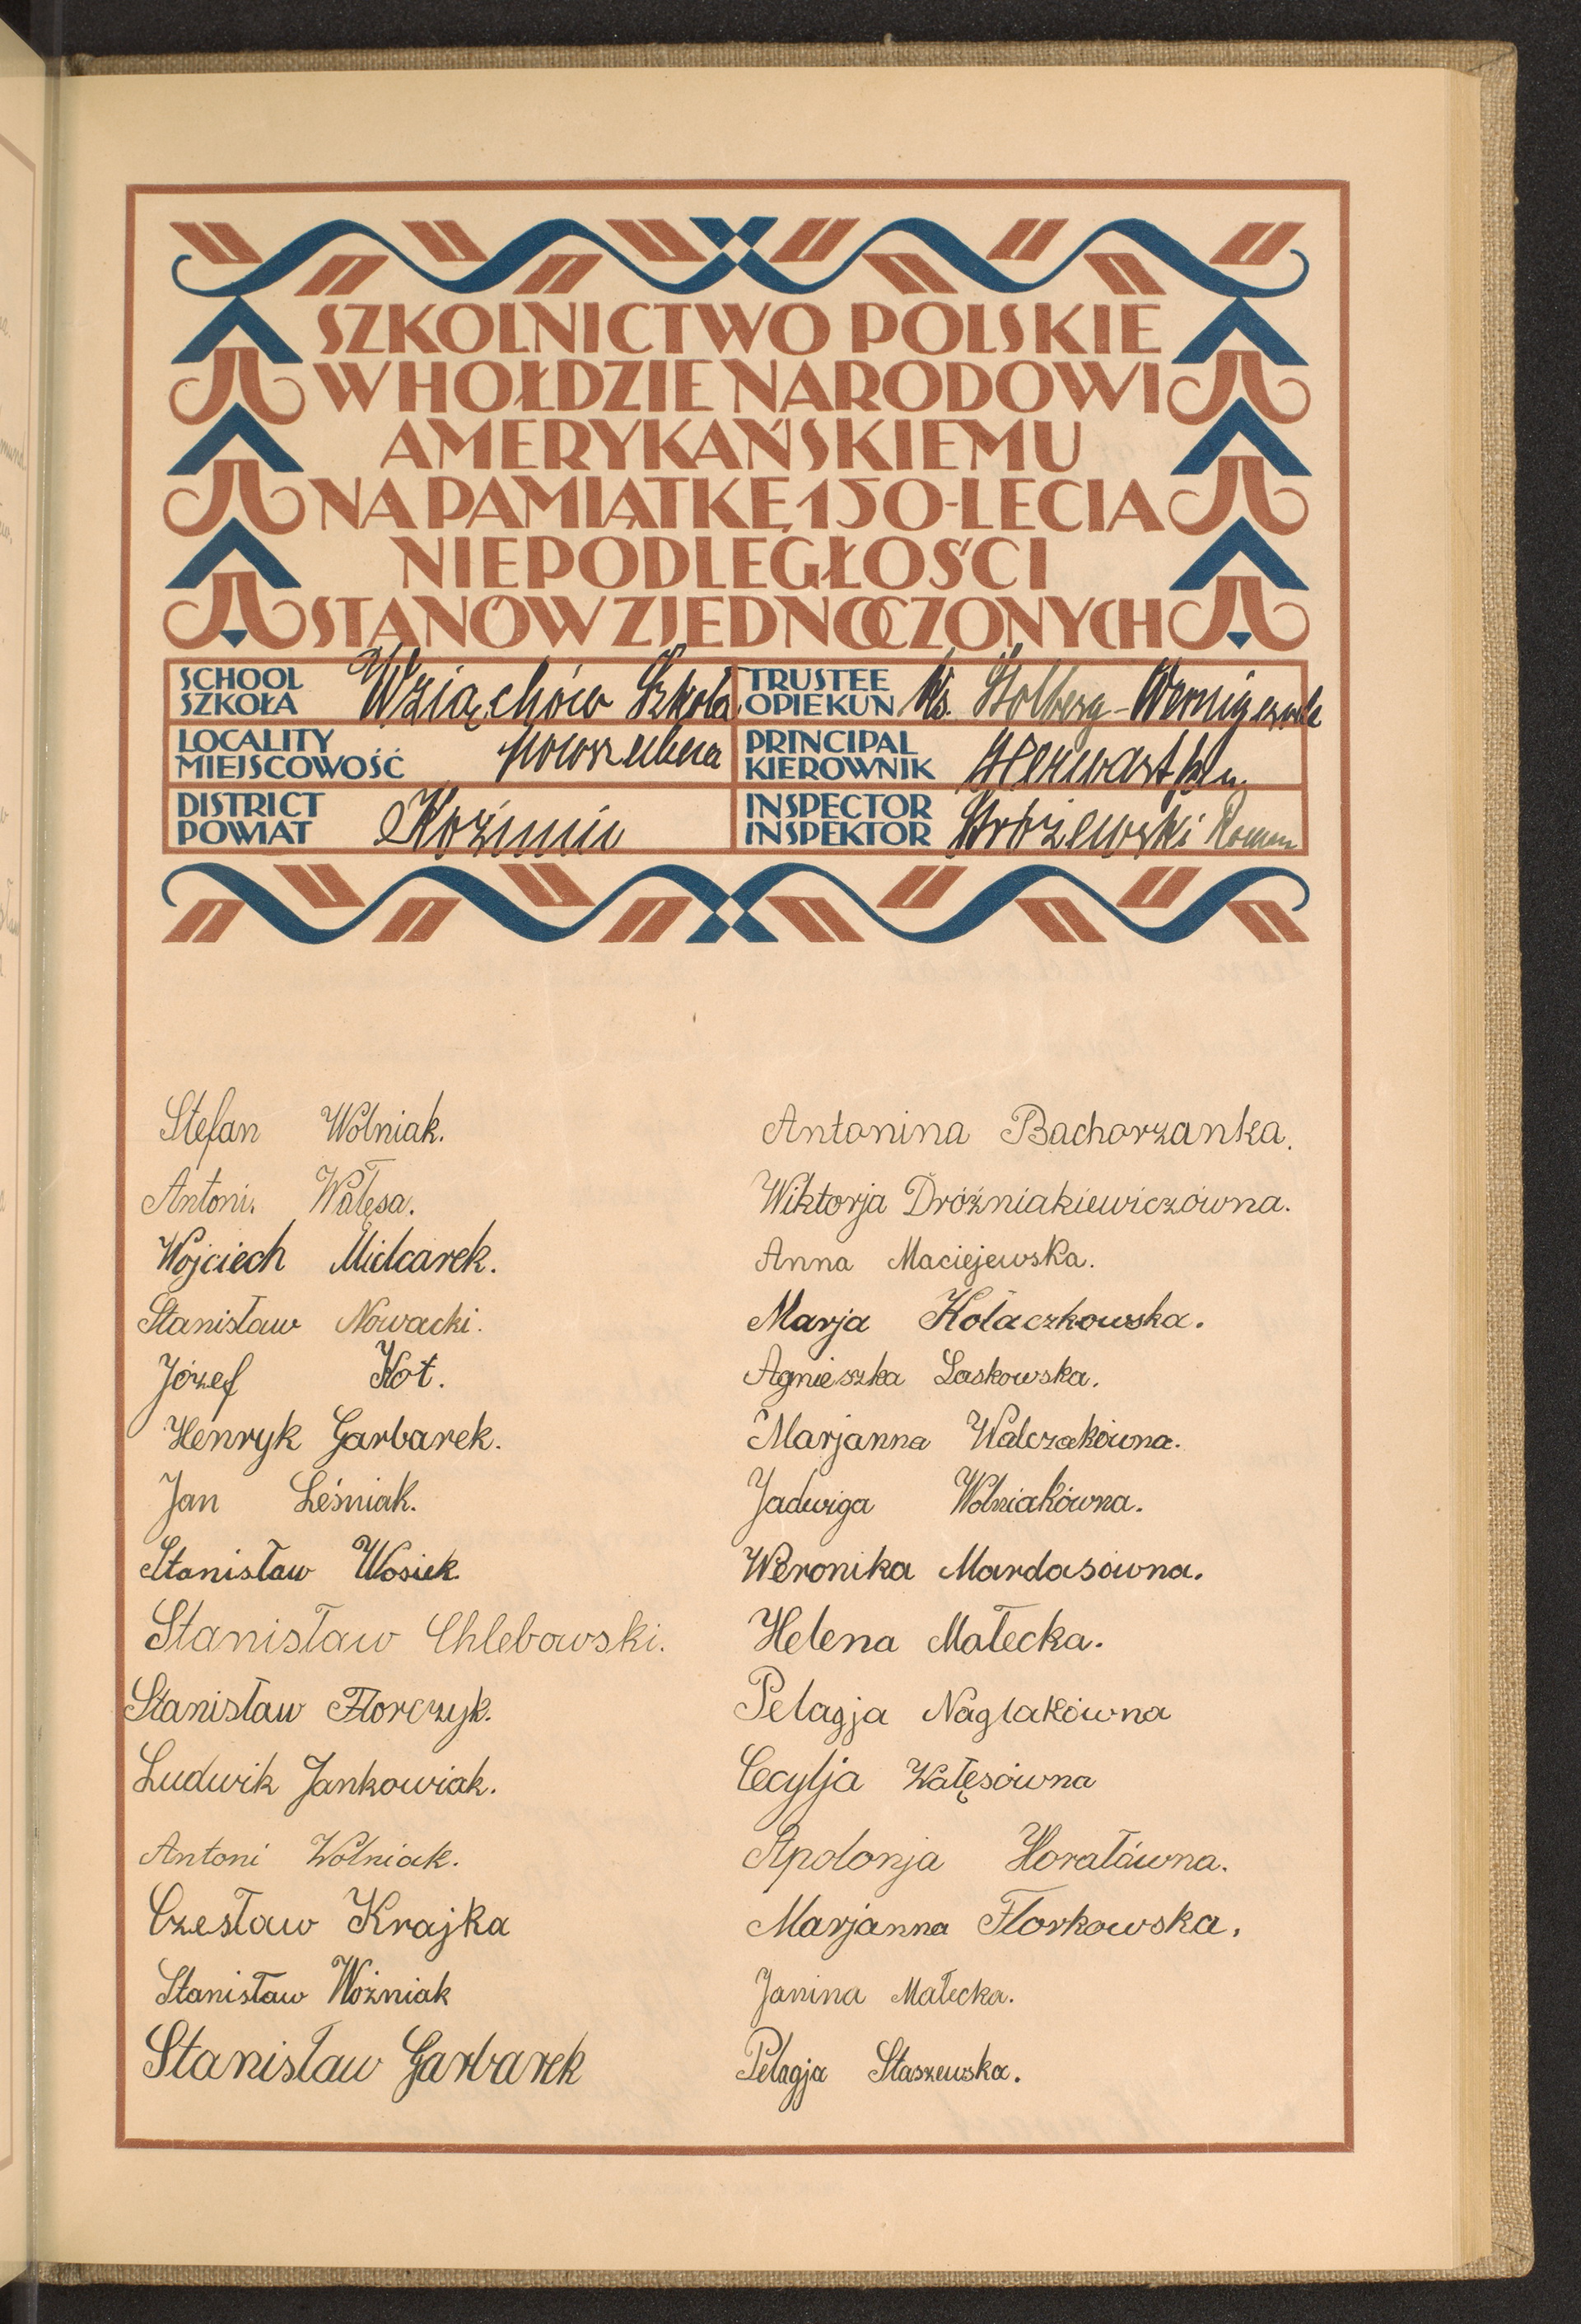 SZKOLNICTWO POLSKIE
W HOŁDZIE NARODOWI
AMERYKAŃSKIEMU
NA PAMIĄTKĘ 150-LECIA
NIEPODLEGŁOŚCI
STANÓW ZJEDNOCZONYCH
SCHOOL
SZKOŁA
Wziąchów Szkoła
TRUSTEE
OPIEKUN
Ks. Stolberg-Wernigerode
LOCALITY
MIEJSCOWOŚĆ
powszechna
PRINCIPAL
KIEROWNIK
DISTRICT
POWIAT
Koźmin
INSPECTOR
INSPEKTOR
Stróżewski Roman
Stefan Wolniak.
Antoni. Wałęsa.
Wojciech Mielcarek.
Stanisław Nowacki.
Józef Kot.
Henryk Garbarek.
Jan Leśniak.
Stanisław Wosiek.
Stanisław Chlebowski.
Stanisław Florczyk.
Ludwik Jankowiak.
Antoni Wolniak.
Czesław Krajka
Stanisław Woźniak
Stanisław Garbarek
Antonina Bachorzanka.
Wiktorja Dróżniakiewiczówna.
Anna Maciejewska.
Marja Kołaczkowska.
Agnieszka Laskowska.
Marjanna Walczakówna.
Jadwiga Wolniakówna.
Weronika Mardasówna.
Helena Małecka.
Pelagja Naglakówna
Cecylja Wałęsówna
Apolonja Horałówna.
Marjanna Florkowska.
Janina Małecka.
Pelagja Staszewska.